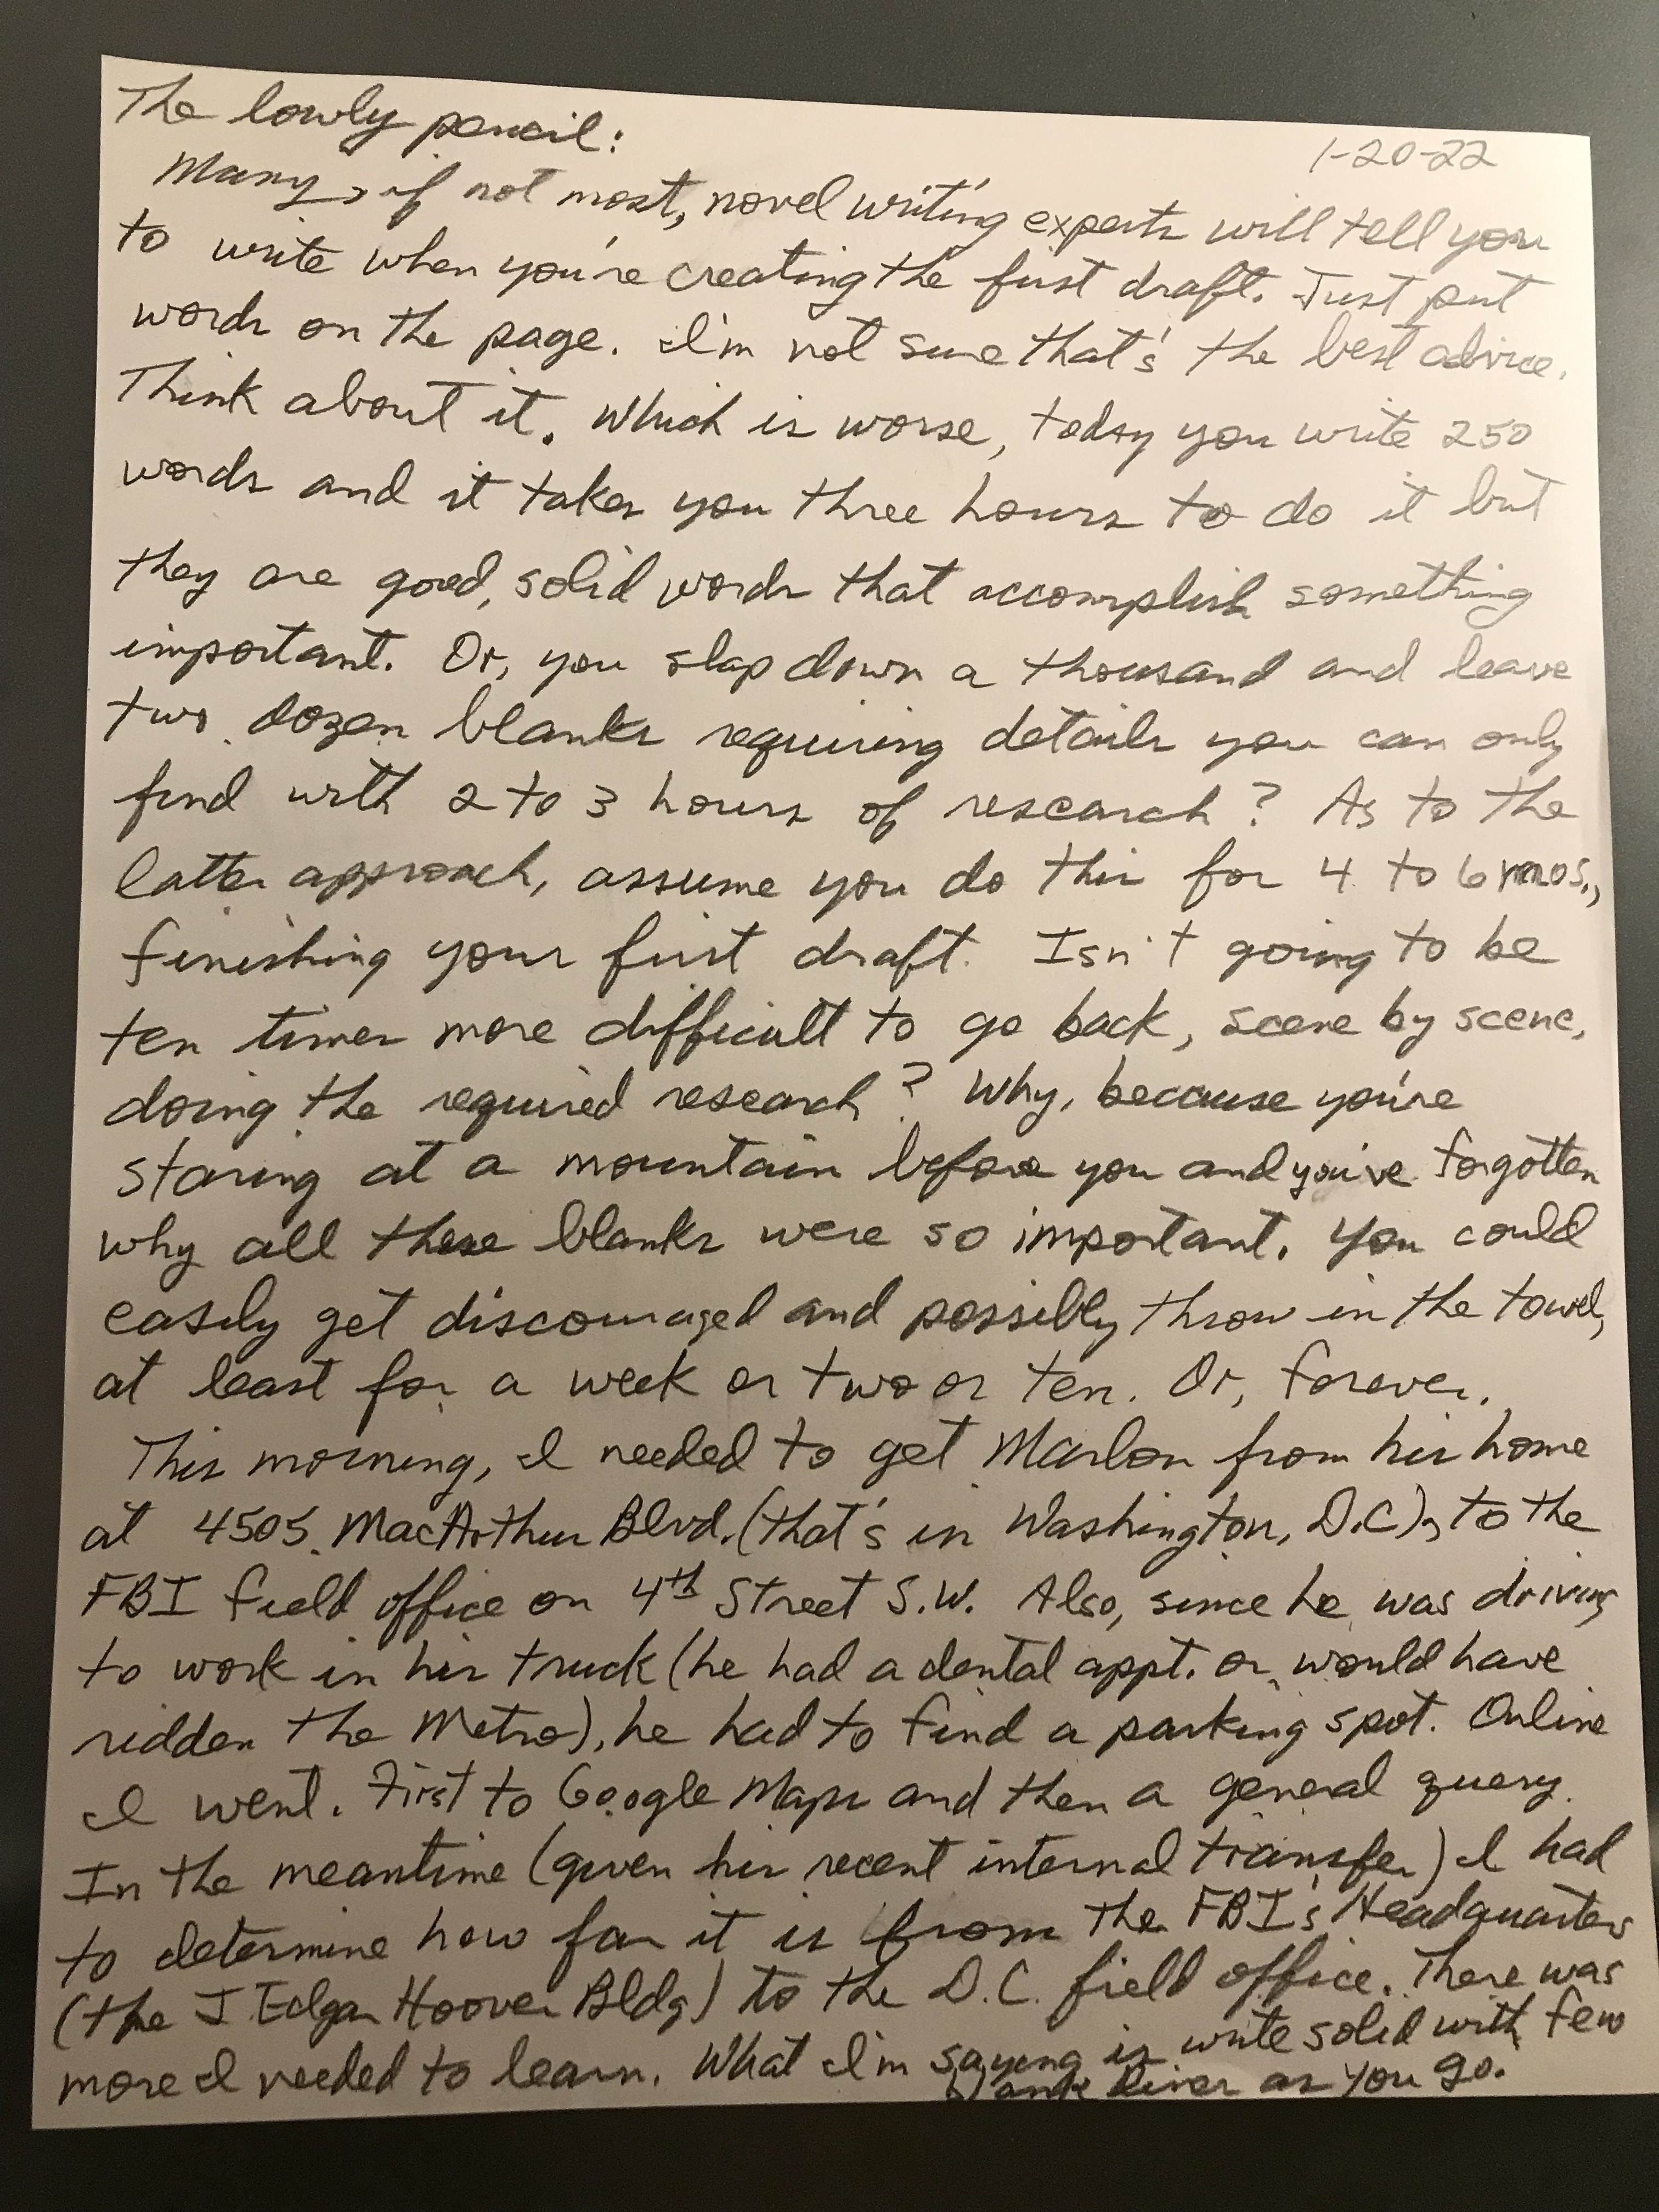 The lowly pencil:
1-20-22
Many, if not most, novel writing experts will tell you
to write when you're creating the first draft. Just put
words on the page. I'm not sure that's the best advice.
Think about it. Which is worse, today you write 250
words and it takes you three hours to do it but
they are good, solid words that accomplish something
important. Or, you slap down a thousand and leave
two dozen blanks requiring details you can only
find with 2 to 3 hours of research? As to the
latter approach, assume you do this for 4 to 6 mos.,
finishing your first draft. Isn't going to be
ten times more difficult to go back, scene by scene,
doing the required research? Why, because you're
staring at a mountain before you and you've forgotten
why all these blanks were so important. You could
easily get discouraged and possibly throw in the towel,
at least for a week or two or ten. Or, forever.
This morning, I needed to get Marlon from his home
at 4505 MacArthur Blvd. (that's in Washington, D.C), to the
FBI field office on 4th Street S.W. Also, since he was driving
to work in his truck (he had a dental appt. or would have
ridden the Metro), he had to find a parking spot. Online
I went. First to Google Maps and then a general query.
In the meantime (given his recent internal transfer) I had
to determine how far it is from the FBI's Headquarters
(the J. Edgar Hoover Bldg) to the D.C. field office. There was
more I needed to learn. What I'm saying is write solid with few
as you go.